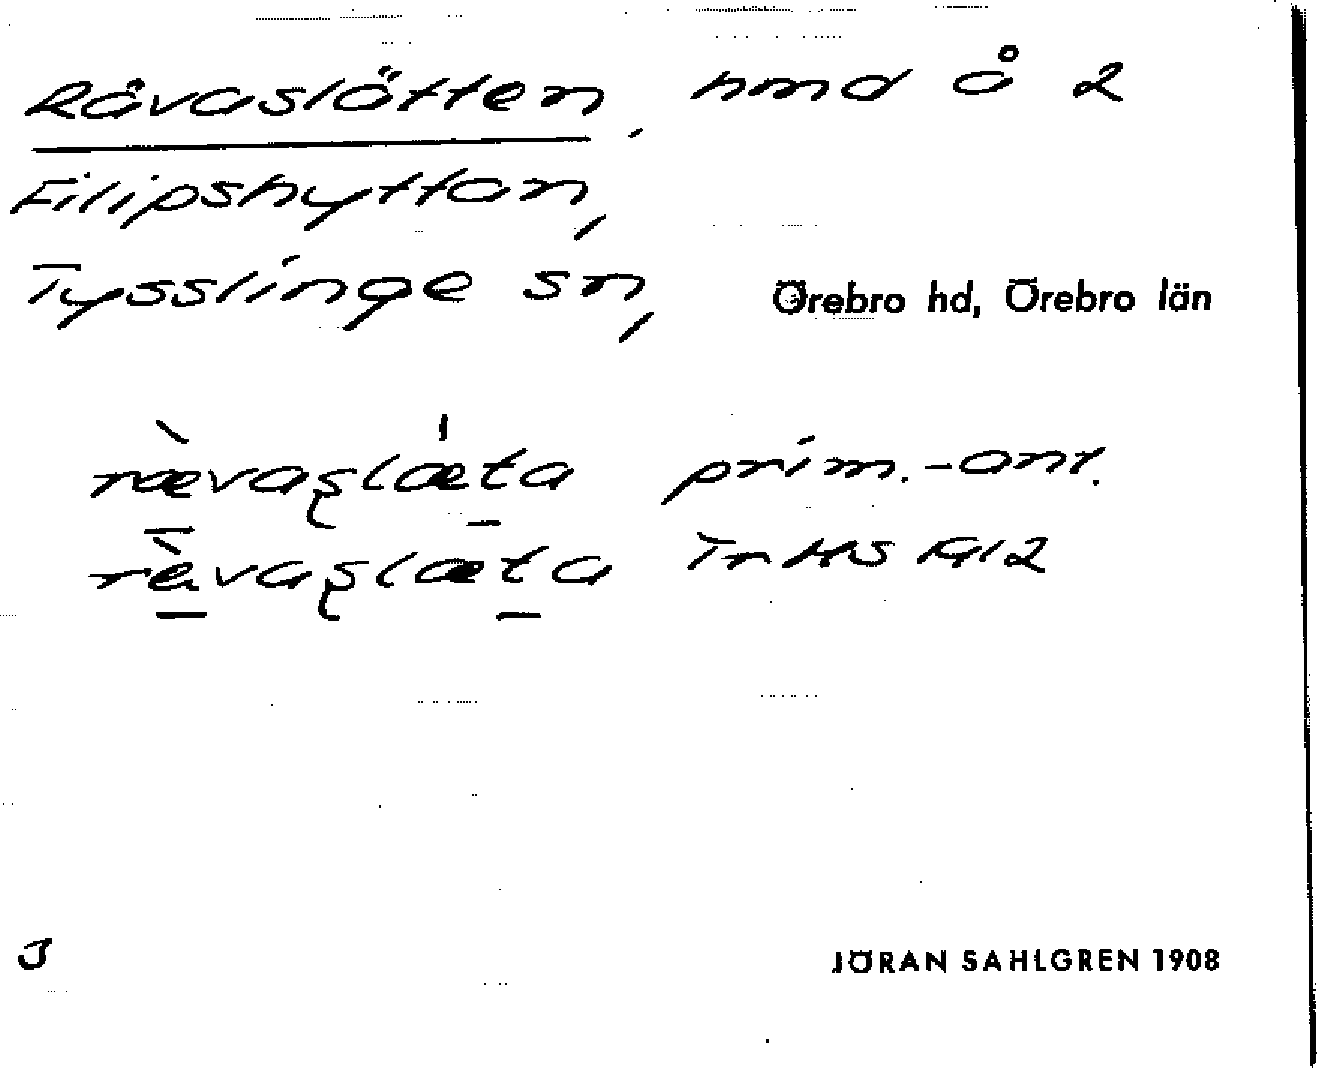 Rävaslätten, hmd å 2
Filipshyttan,
Tysslinge sn, Örebro hd, Örebro län
ræ̀vaşlǽta prim.-ant.
rèvaşlæta TrHS 1912
J
JÖRAN SAHLGREN 1908